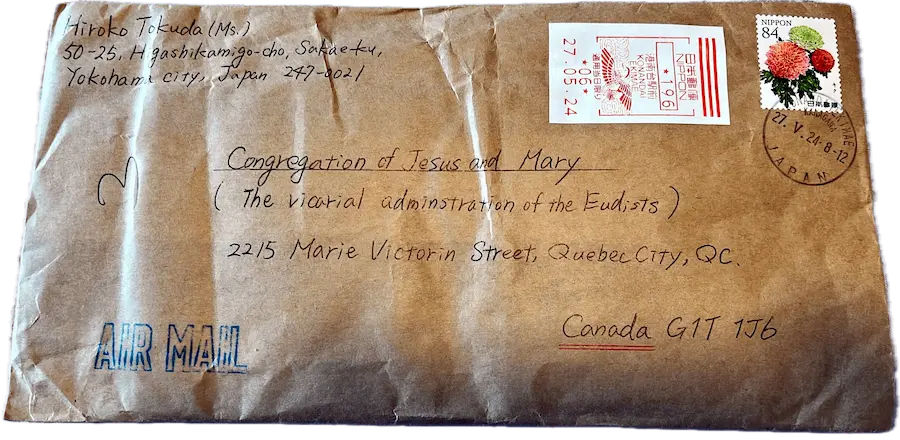 Hiroko Tokuda (Ms.)
50-25, Higashikamigo-cho, Sakae-ku,
Yokohama city, Japan 247-0021
日本郵便
NIPPON
*196
港南台駅前
KONANDAI
EKIMAE
*06*
27.05.24
NIPPON
84
日本郵便
27.V.24.8-12
JAPAN
Congregation of Jesus and Mary
( The vicarial adminstration of the Eudists )
2215 Marie Victorin Street, Quebec City, QC.
Canada G1T 1J6
AIR MAIL